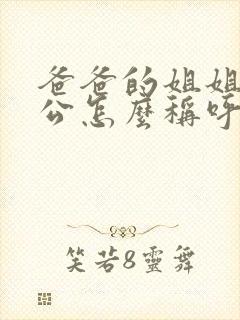 爸爸的姐姐
公怎麼稱呼
笑若8靈舞